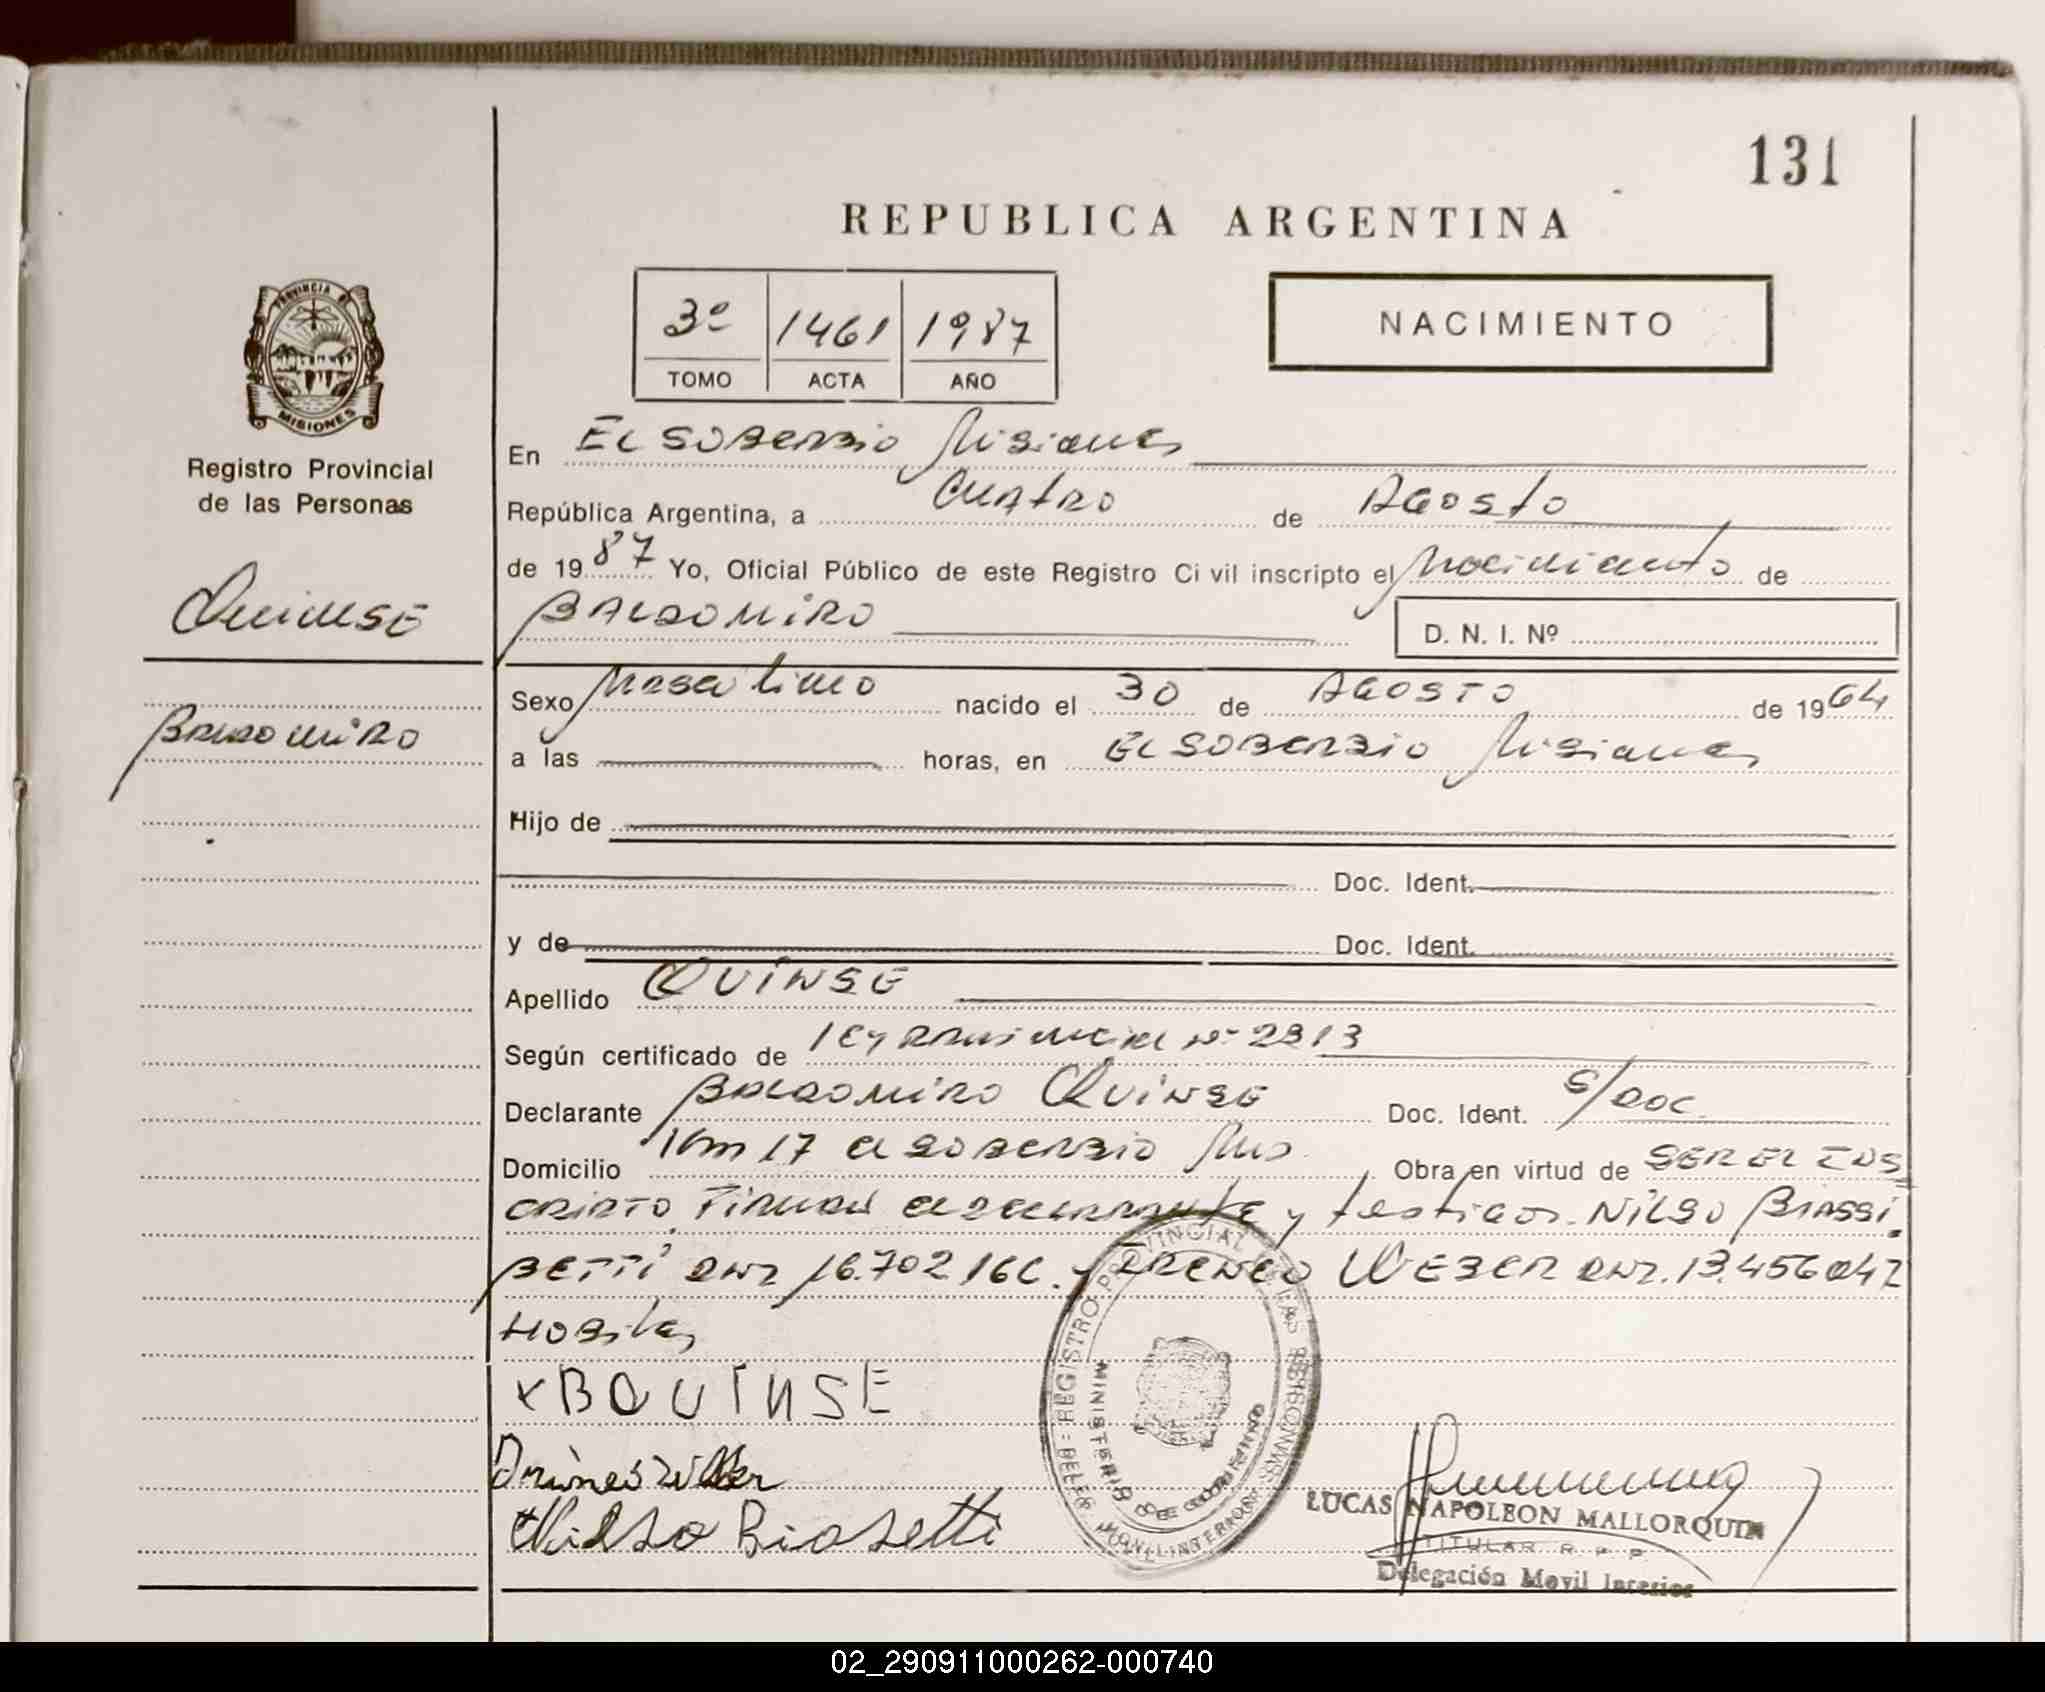 131
REPUBLICA ARGENTINA
3º 1461 1987
TOMO ACTA AÑO
NACIMIENTO
PROVINCIA DE
MISIONES
Registro Provincial
de las Personas
Quinse
Baldomiro
En El Soberbio Misiones
República Argentina, a Cuatro de Agosto
de 1987 Yo, Oficial Público de este Registro Ci vil inscripto el Nacimiento de
BALDOMIRO D. N. I. Nº
Sexo Masculino nacido el 30 de AGOSTO de 1964
a las horas, en El Soberbio Misiones
Hijo de
Doc. Ident.
y de Doc. Ident.
Apellido QUINSE
Según certificado de ley Provincial Nº 2313
Declarante Baldomiro Quinse Doc. Ident. S/Doc
Domicilio Km 17 El Soberbio Mis. Obra en virtud de SER EL INS
CRIPTO Firman el declarante y testigos. Nilso Biassi
BETTI DNI 16.702.166 y IRENEO WEBER DNI. 13.456042
Hobiles
x B QUINSE
Nilso Biasetti
REGISTRO PROVINCIAL DE LAS PERSONAS
MINISTERIO DE GOBIERNO
LUCAS NAPOLEON MALLORQUIN
TITULAR R. P. P.
Delegación Movil Interior
02_290911000262-000740